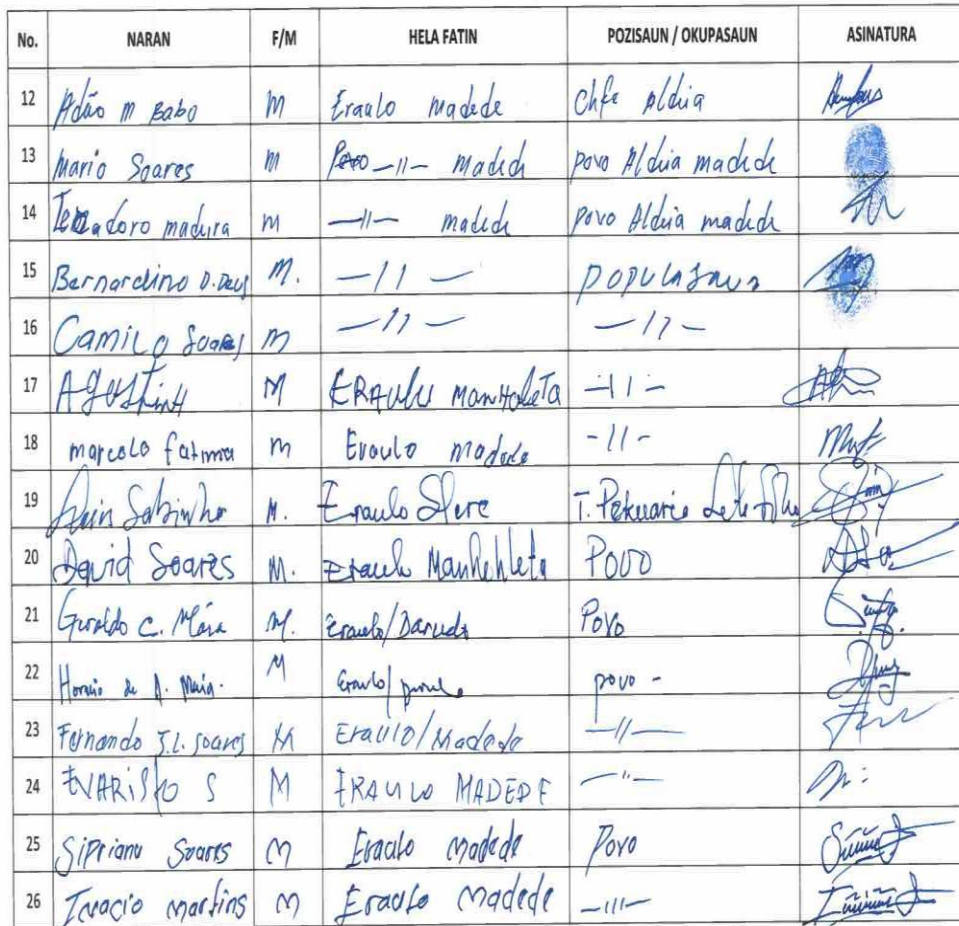 No. NARAN F/M HELA FATIN POZISAUN / OKUPASAUN ASINATURA
12 Adão M Babo M Eraulo madede Chfe Aldia
13 Mario Soares M —11— madede povo Aldeia madede
14 madeira M —11— madede povo Aldeia madede
15 Bernardino D. Deus M. —11— POPULASAUN
16 Camilo Soares M —11— —11—
17 M ERAULU MANHOLETA —11—
18 marcelo fatima m Eraulo madede —11—
19 Sabinho M. Eraulo T. Pekuaria
20 David Soares M. Eraulo POVO
21 C. M. Eraulo/ Povo
22 de M Eraulo/ povo -
23 Fernando J.L. Soares M Eraulo/Madede —11—
24 EVARISTO S M ERAULO MADEDE —"—
25 Sipriano Soares M Eraulo Madede Povo
26 Inacio Martins M Eraulo Madede —111—